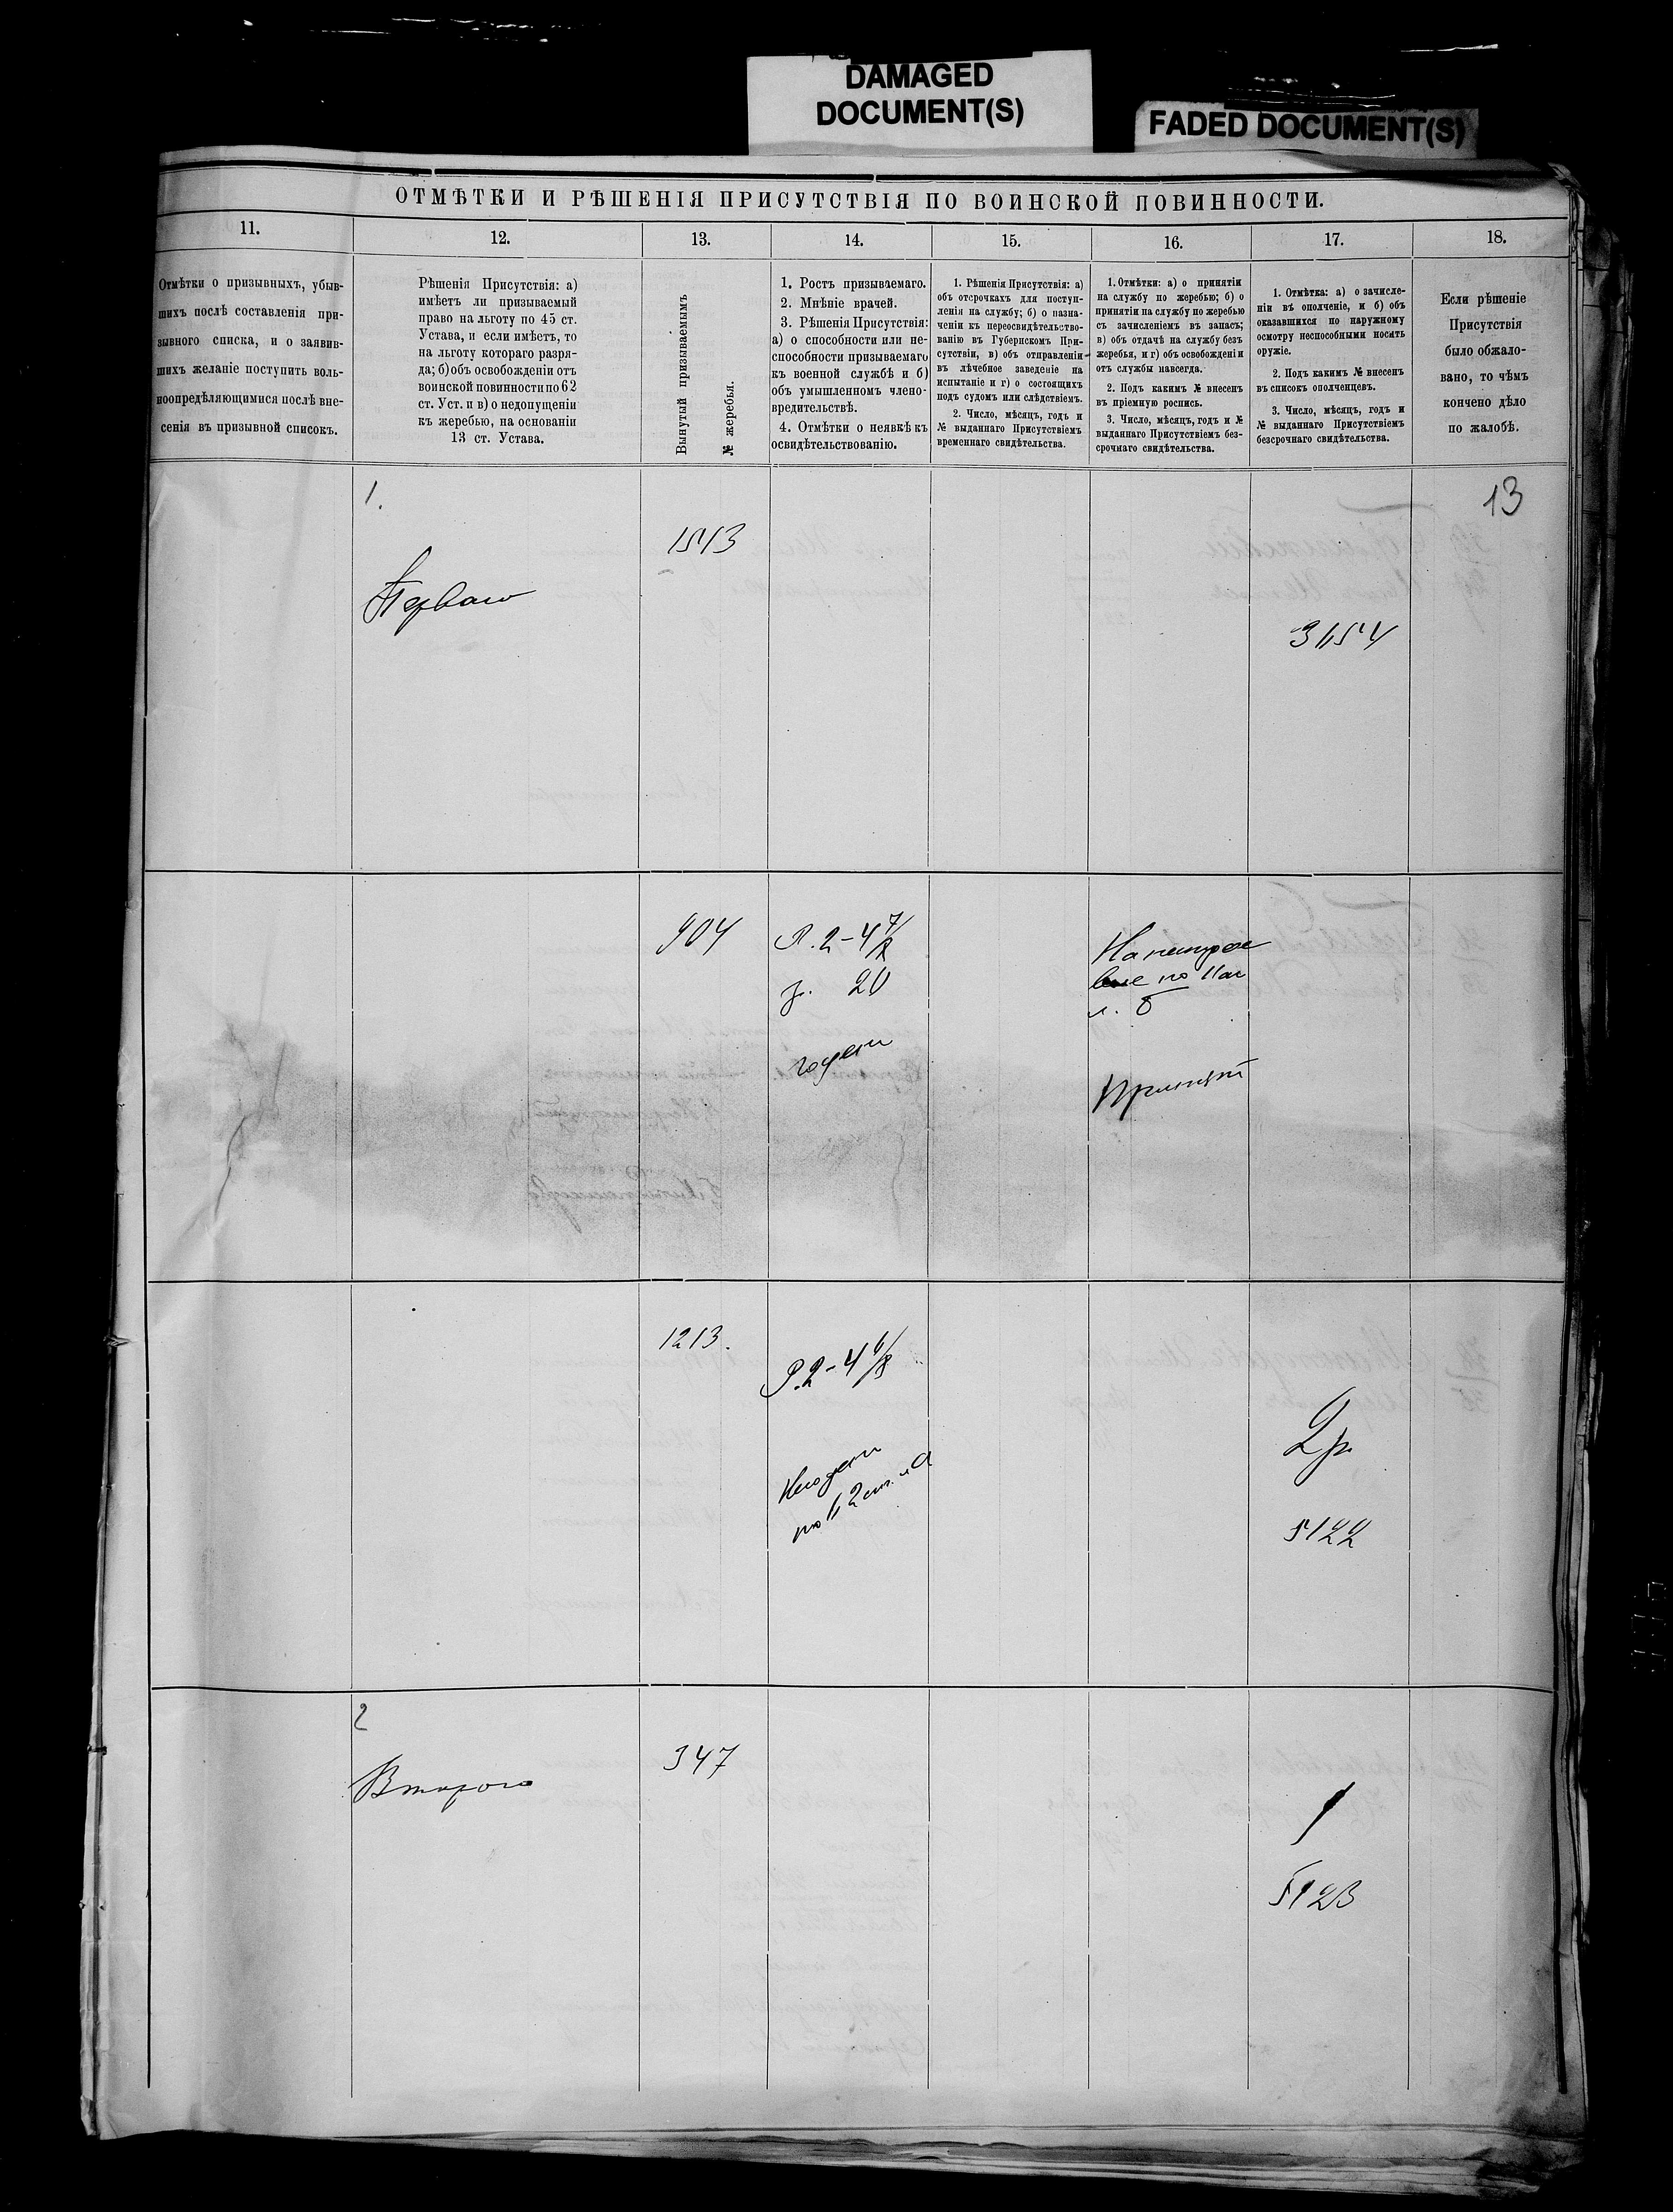 DAMAGED
DOCUMENT(S)
FADED DOCUMENT(S)
ОТМѢТКИ И РѢШЕНІЯ ПРИСУТСТВІЯ ПО ВОИНСКОЙ ПОВИННОСТИ.
11.
12.
13.
14.
15.
16.
17.
18.
Отмѣтки о призывныхъ, убыв-
шихъ послѣ составленія при-
зывного списка, и о заявив-
шихъ желаніе поступить воль-
ноопредѣляющимися послѣ вне-
сенія въ призывной списокъ.
Рѣшенія Присутствія: а)
имѣетъ ли призываемый
право на льготу по 45 ст.
Устава, и если имѣетъ, то
на льготу котораго разря-
да; б) объ освобожденіи отъ
воинской повинности по 62
ст. Уст. и в) о недопущеніи
къ жеребью, на основаніи
13 ст. Устава.
Вынутый призываемымъ
№ жеребья.
1. Ростъ призываемаго.
2. Мнѣніе врачей.
3. Рѣшенія Присутствія:
а) о способности или не-
способности призываемаго
къ военной службѣ и б)
объ умышленномъ члено-
вредительствѣ.
4. Отмѣтки о неявкѣ къ
освидѣтельствованію.
1. Рѣшенія Присутствія: а)
объ отсрочкахъ для поступ-
ленія на службу; б) о назна-
ченіи къ переосвидѣтельство-
ванію въ Губернскомъ При-
сутствіи, в) объ отправленіи
въ лѣчебное заведеніе на
испытаніе и г) о состоящихъ
подъ судомъ или слѣдствіемъ.
2. Число, мѣсяцъ, годъ и
№ выданнаго Присутствіемъ
временнаго свидѣтельства.
1. Отмѣтки: а) о принятіи
на службу по жеребью; б) о
принятіи на службу по жеребью
съ зачисленіемъ въ запасъ;
в) объ отдачѣ на службу безъ
жеребья, и г) объ освобожденіи
отъ службы навсегда.
2. Подъ какимъ № внесенъ
въ пріемную роспись.
3. Число, мѣсяцъ, годъ и №
выданнаго Присутствіемъ без-
срочнаго свидѣтельства.
1. Отмѣтка: а) о зачисле-
ніи въ ополченіе, и б) объ
оказавшихся по наружному
осмотру неспособными носить
оружіе.
2. Подъ какимъ № внесенъ
въ списокъ ополченцевъ.
3. Число, мѣсяцъ, годъ и
№ выданнаго Присутствіемъ
безсрочнаго свидѣтельства.
Если рѣшеніе
Присутствія
было обжало-
вано, то чѣмъ
кончено дѣло
по жалобѣ.
13
1.
Перваго
1513
3154
904
Р. 2-4 7/8
г. 20
годенъ
Принятъ
1213.
Р. 2-4 6/8
Негоденъ
по 2 ст. л А
2 р.
5122
2
Второго
347
1
5123